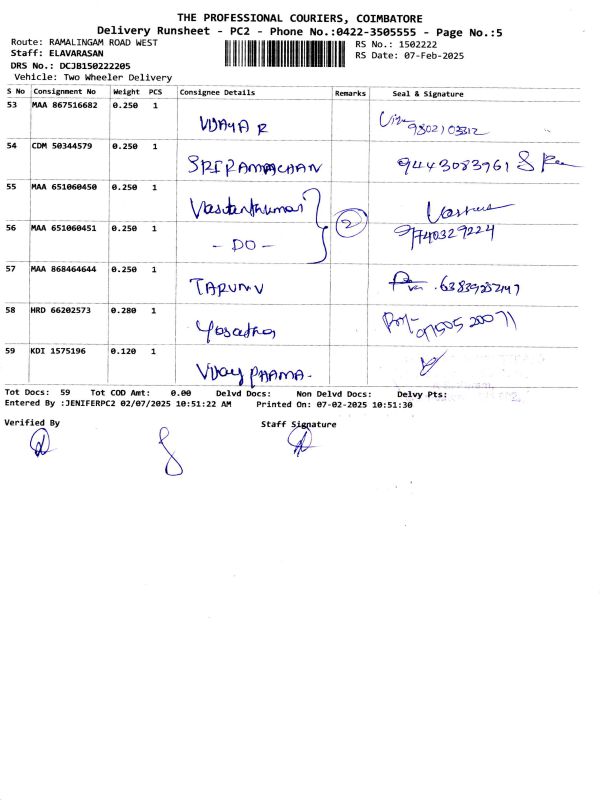 THE PROFESSIONAL COURIERS, COIMBATORE
Delivery Runsheet - PC2 - Phone No.:0422-3505555 - Page No.:5
Route: RAMALINGAM ROAD WEST RS No.: 1502222
Staff: ELAVARASAN RS Date: 07-Feb-2025
DRS No.: DCJB150222205
Vehicle: Two Wheeler Delivery
S No Consignment No Weight PCS Consignee Details Remarks Seal & Signature
53 MAA 867516682 0.250 1 VIJAYA R
54 CDM 50344579 0.250 1 SRIRAMACHAN 9443083961
55 MAA 651060450 0.250 1 Vasantkumar
56 MAA 651060451 0.250 1 - DO - 2 9740329224
57 MAA 868464644 0.250 1 TARUN V
58 HRD 66202573 0.280 1 Yosatha
59 KDI 1575196 0.120 1 Vijay PARMA.
Tot Docs: 59 Tot COD Amt: 0.00 Delvd Docs: Non Delvd Docs: Delvy Pts:
Entered By :JENIFERPC2 02/07/2025 10:51:22 AM Printed On: 07-02-2025 10:51:30
Verified By Staff Signature